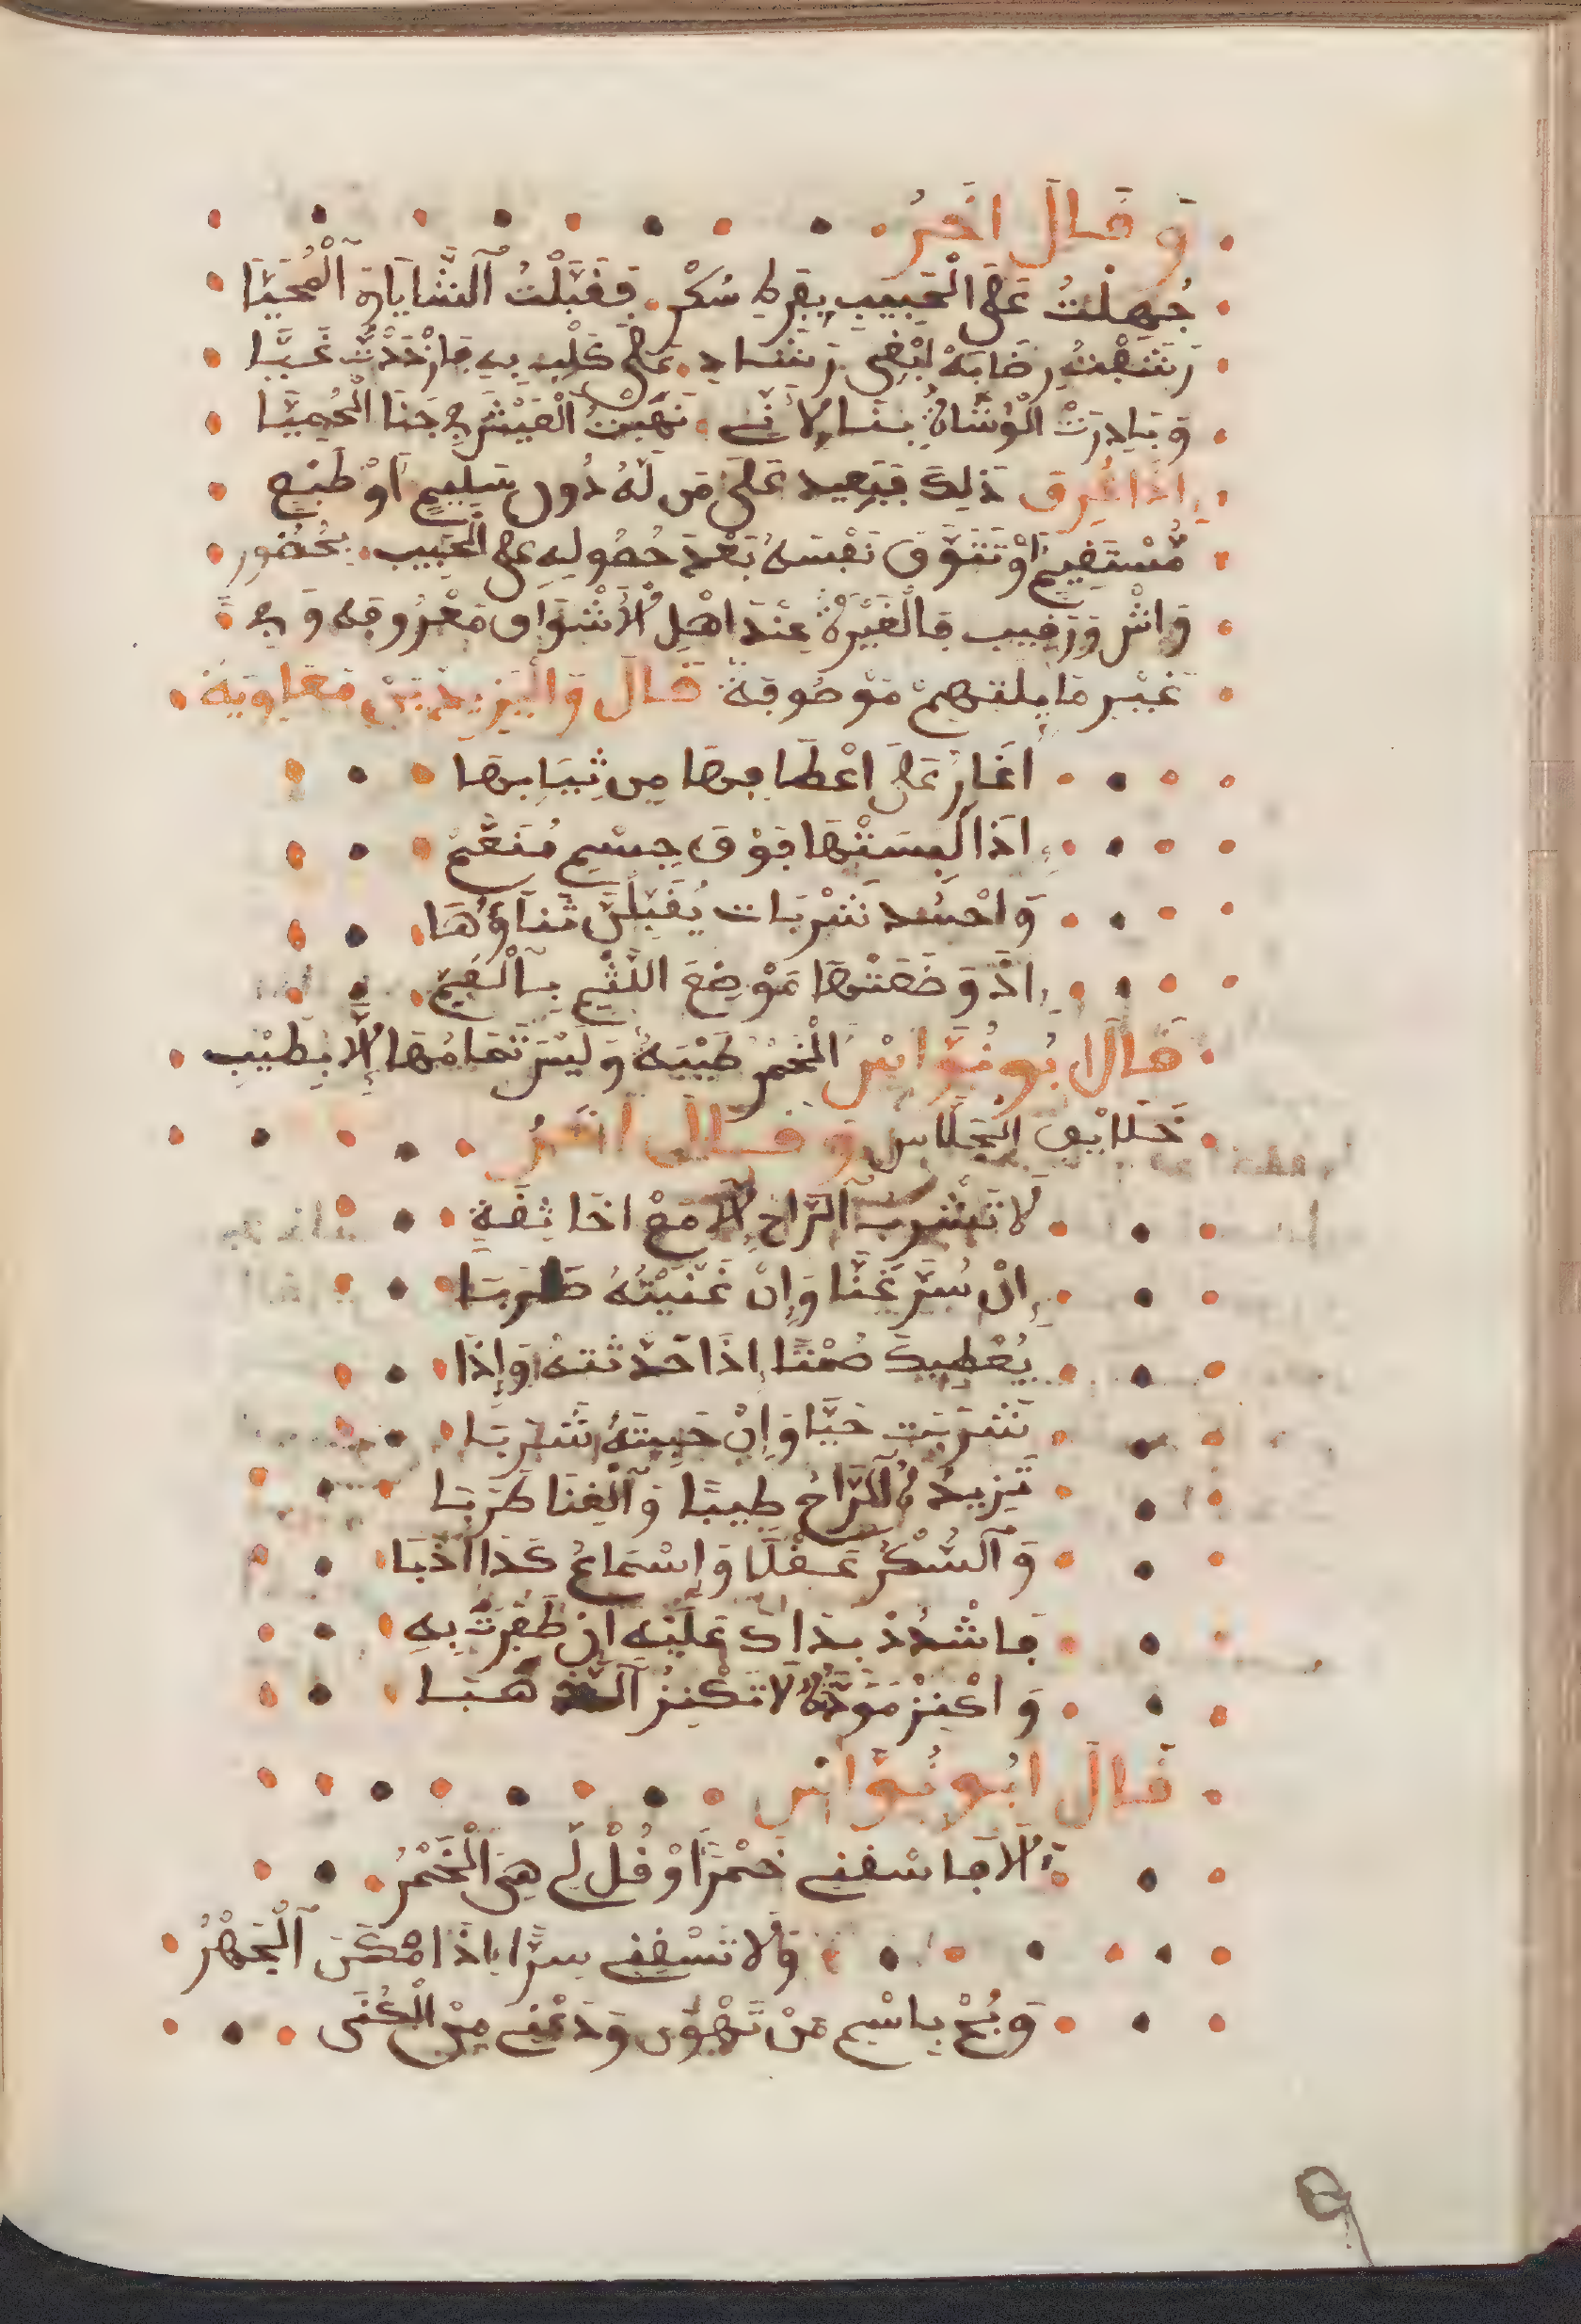 وَقَالَ اخَرُ
جُهِلْتُ عَلَى الْحَبِيبِ بِفَرْطِ سُكْرٍ فَقَبَّلْتُ ٱلثَّنَايَا وَ ٱلْمُحَيَّا
رَشَفْتُ رضَابَهُ لِيُغْنِى رَشَادِ عَلَى قَلْبِ بِهِ فَازْدَدْتُ غَيَّا
وَبَادِرَتْ الْوُشَاةُ بِنَا لِأَنِّى نَهَبْتُ الْعَيْشَ فِى جَنَا الْحُمِيَّا
إِذَا عُرِفَ ذَلِكَ فَبَعِيد عَلَى مَن لَهُ ذُوْق سَلِيمٍ أَوْ طَبْعٍ
مُسْتَقِيمٍ أَوْ تَشَوُّقَ نَفْسَهُ بَعْدَ حُصُولِهِ عَلَى الْحَبِيب بِحُضُور
وَاشٍ وَرَقِيب فَالْغَيْرَةُ عِنْدَ اهْلِ الْأَشْوَاق مَعْرُوفَه وَفِى
غَيْر مَا مِلتهمْ مَوْصُوفَةً قَالَ وَالْيَزِيدُ بَنْ مُعَاوِيَةَ
اغَارُ عَلَى اعْطَافِهَا مِن ثِيَابِهَا
إِذَا لَبِسَتْهَا فَوْقَ جِسْمٍ مُنَعَّمٍ
وَاحْسُد شَرْبَات يُقَبِّلْنَ ثَنَاؤُهَا
إِذَّ وَضَعَتْهَا مَوْضِعَ اللَّثْمِ بِالْفَمِ
قَالَ ابُو نُوَاسْ الْخَمْر طَيْبَةٌ وَلَيْسَ تَمَامُهَا إِلَّا بِطِيْبِ
خَلَايِق الْجَلَّاسِ وَقَالَ اخَرُ
لَا تَشْرِب ٱلرَّاحَ إِلَّا مَعْ اخَا ثِقَةٍ
إِنْ سُرَّ غَنَّا وَإِنْ غَنَّيْتُهُ طَرَبَا
يُعْطِيكَ صُمْتًا إِذَا حَدَّثتهُ وَإِذَا
شَرِبَت حَيَّا وَإِنْ حَيِيتَهُ شَرِبَا
تَزِيدُهُ ٱلرَّاحُ طِيبًا وَٱلْغِنَا طَرَبَا
وَٱلسُّكْرُ عَقْلًا وَإِسْمَاعُ كَذَا أَدَبَا
فَاشْدُدْ يدَاكَ عَلَيْهِ إِنْ ظَفِرْتَ بِهِ
وَاكْنِزْ مَوَدَّتُهُ لَا تَكْنِزُ ٱلذَّهَبَا
قَالَ ابُو نُوَاس
أَلَا فَاسْقِنِى خَمْرًا وْ قُلْ لِى هِىَ الْخَمْرُ
وَلَا تَسْقِنِى سِرًّا إِذَا امْكَنَ ٱلْجَهْرُ
وَبُحْ بِاسْمِ مَنْ تَهْوَى وَدَعْنِى مِنَ الْكُنَى